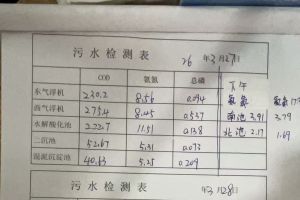 污水检测表
26年3月27日
COD 氨氮 总磷 下午
东气浮机 230.2 8.56 0.094 氨氮
西气浮机 275.4 8.45 0.537 南池 3.91 3.79
水解酸化池 222.7 11.51 0.138 北池 2.17 1.69
二沉池 52.67 5.31 0.073
混泥沉淀池 40.63 5.25 0.209
污水检测表
年3月28日